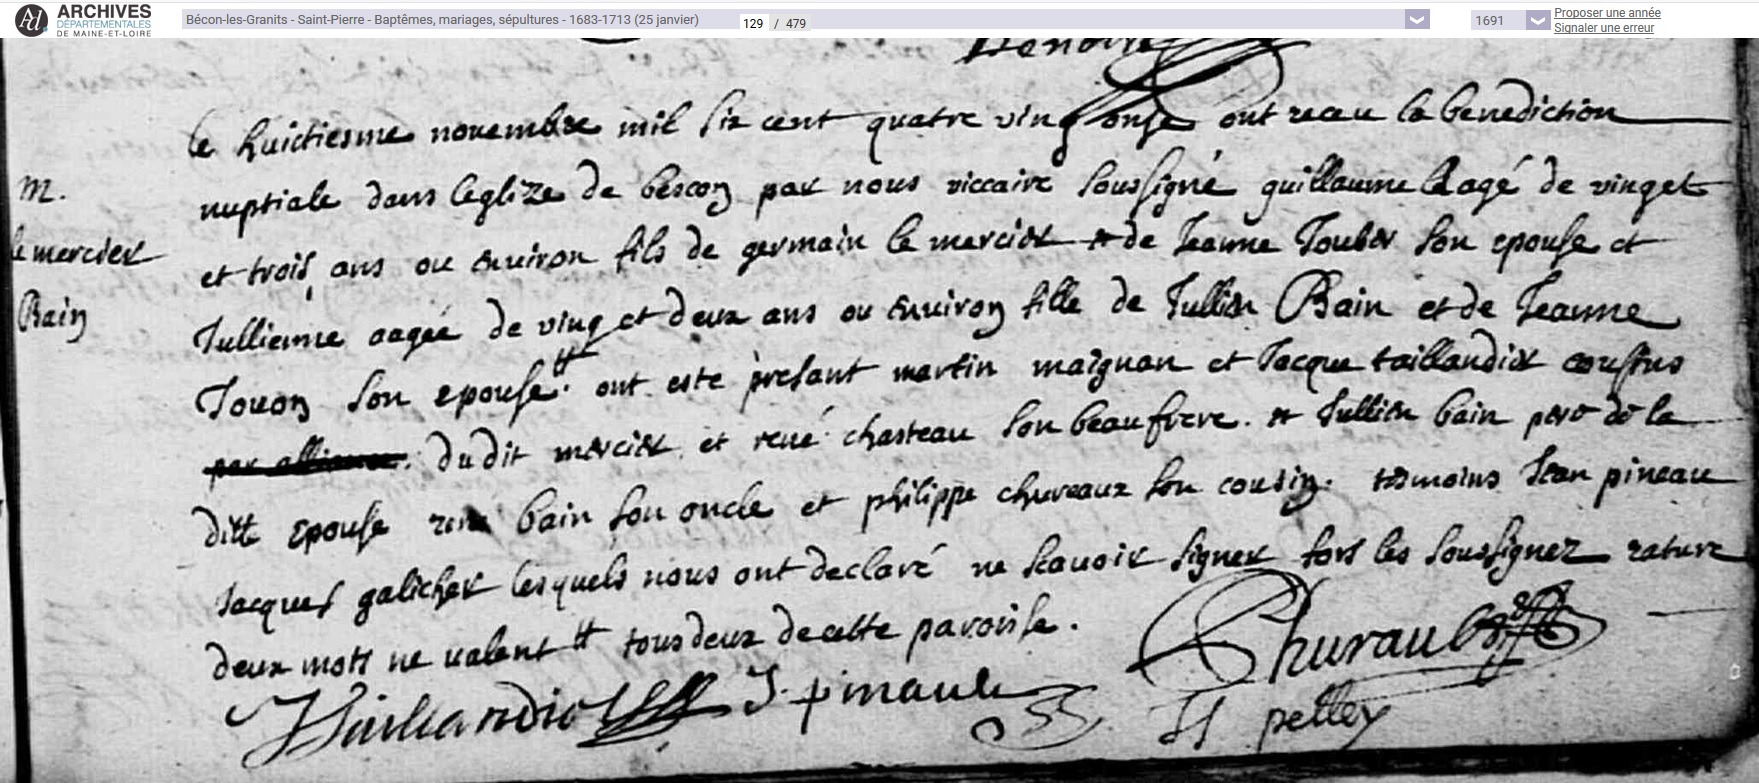 ARCHIVES
DÉPARTEMENTALES
DE MAINE-ET-LOIRE
Bécon-les-Granits - Saint-Pierre - Baptêmes, mariages, sépultures - 1683-1713 (25 janvier)
129 / 479
1691
Proposer une année
Signaler une erreur
le huictiesme novembre mil six cent quatre ving onze ont receu la benediction
M.
nuptiale dans leglize de becon par nous viccaire soussigné guillaume aagé de vinget
le mercier
et trois ans ou environ fils de germain le mercier et de Jeanne Touber son epouse et
Bain
Jullienne aagée de ving et deux ans ou environ fille de Jullien Bain et de Jeanne
Jouon son epouse ont este présant martin maignan et Jacque taillandier
par alliance. du dit mercier et rené chasteau son beaufrere. et Jullien bain pere de la
ditt epouse rene bain son oncle et philippe chureaux son cousin. tesmoins Jean pineau
Jacques galicher lesquels nous ont declaré ne scavoir signer fors les soussignez rature
deux mots ne valent tt tous deux de cette paroisse.
Churau
J Taillandier J. pinault
pelley